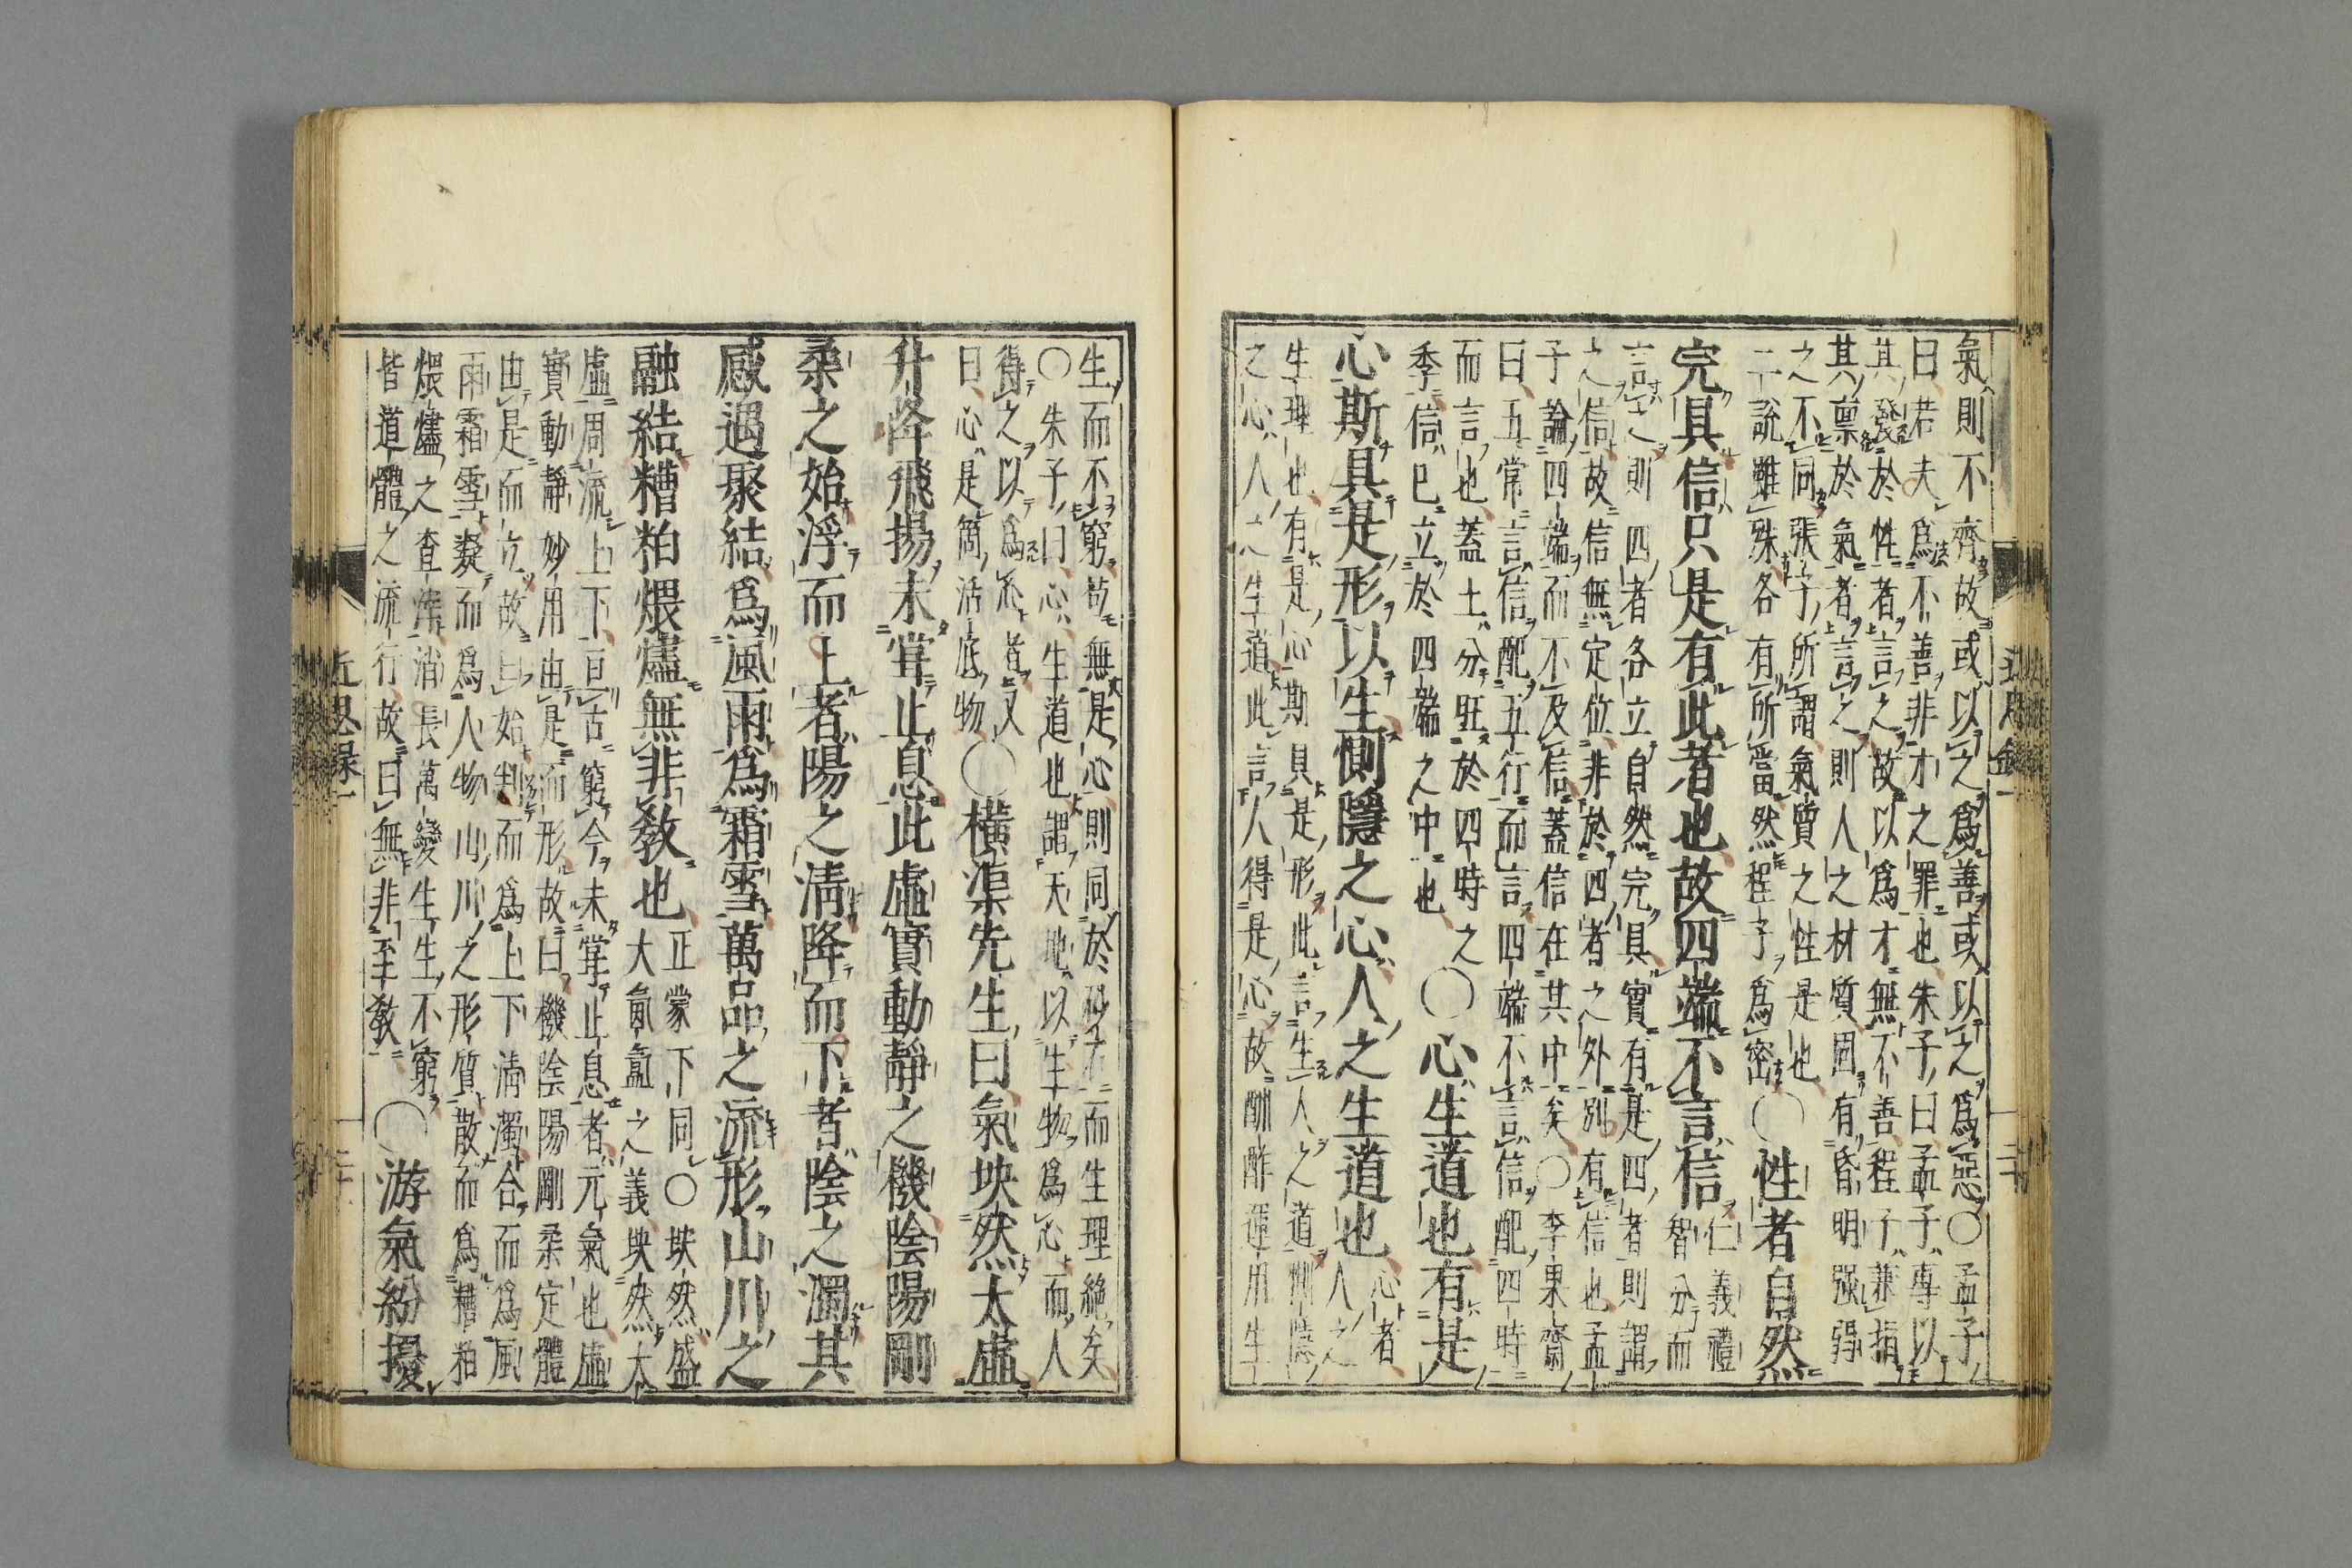 氣則不齊故或以之爲善或以之爲惡〇孟子
曰若夫爲不善非才之罪也朱子曰孟子專以
其發於性者言之故以爲才無不善程子兼指
其禀於氣者言之則人之材質固有昏明强弱
之不同張子所謂氣質之性是也
二說雖殊各有所當然程子爲密〇性者自然
完具信只是有此者也故四端不言信
仁義禮
智分而
言之則四者各立自然完具實有是四者則謂
之信故信無定位非於四者之外別有信也孟
子論四端而不及信蓋信在其中矣〇李果齋
曰五常言信配五行而言四端不言信配四時
而言也蓋土分旺於四時之
季信已立於四端之中也〇心生道也有是
心斯具是形以生惻隱之心人之生道也
心者
人之
生理也有是心斯具是形此言生人之道惻隱
之心人之生道此言人得是心故酬酢運用生
生而不窮苟無是心則同於砂石而生理絶矣
〇朱子曰心生道也謂天地以生物爲心而人
得之以爲心者又
曰心是箇活底物〇橫渠先生曰氣坱然太虛
升降飛揚未甞止息此虛實動靜之機陰陽剛
柔之始浮而上者陽之淸降而下者陰之濁其
感遇聚結爲風雨爲霜雪萬品之流形山川之
融結糟粕煨燼無非敎也
正蒙下同〇坱然盛
大氤氳之義坱然太
虛周流上下亘古窮今未甞止息者元氣也虛
實動靜妙用由是而形故曰機陰陽剛柔定體
由是而立故曰始判而爲上下淸濁合而爲風
雨霜雪凝而爲人物山川之形質散而爲糟粕
煨燼之査滓消長萬變生生不窮
皆道體之流行故曰無非至敎〇游氣紛擾
近思錄一